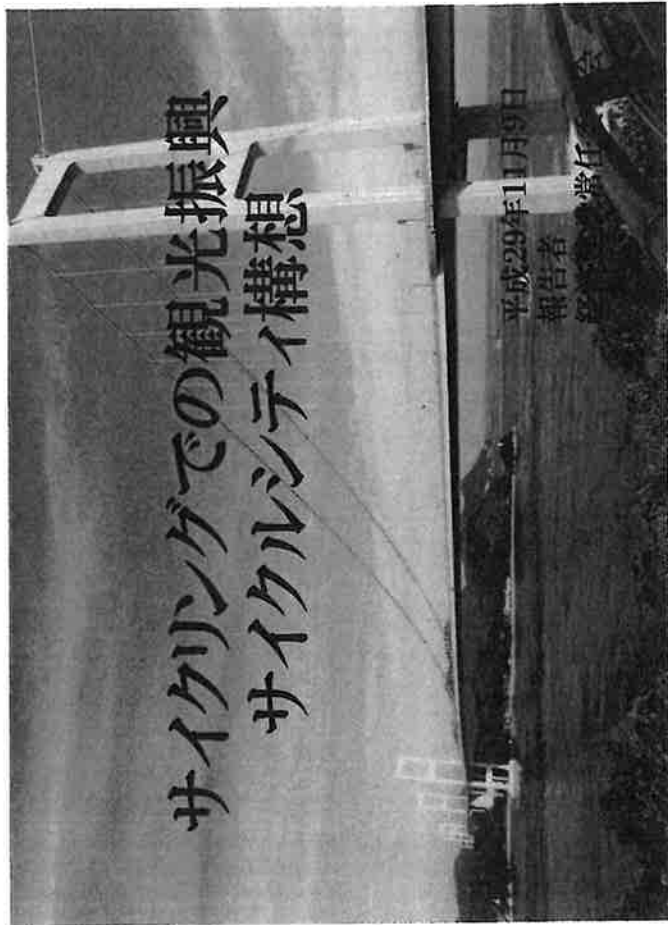 サイクリングでの観光振興
サイクルシティ構想
平成29年11月9日
報告者
経 常任 会